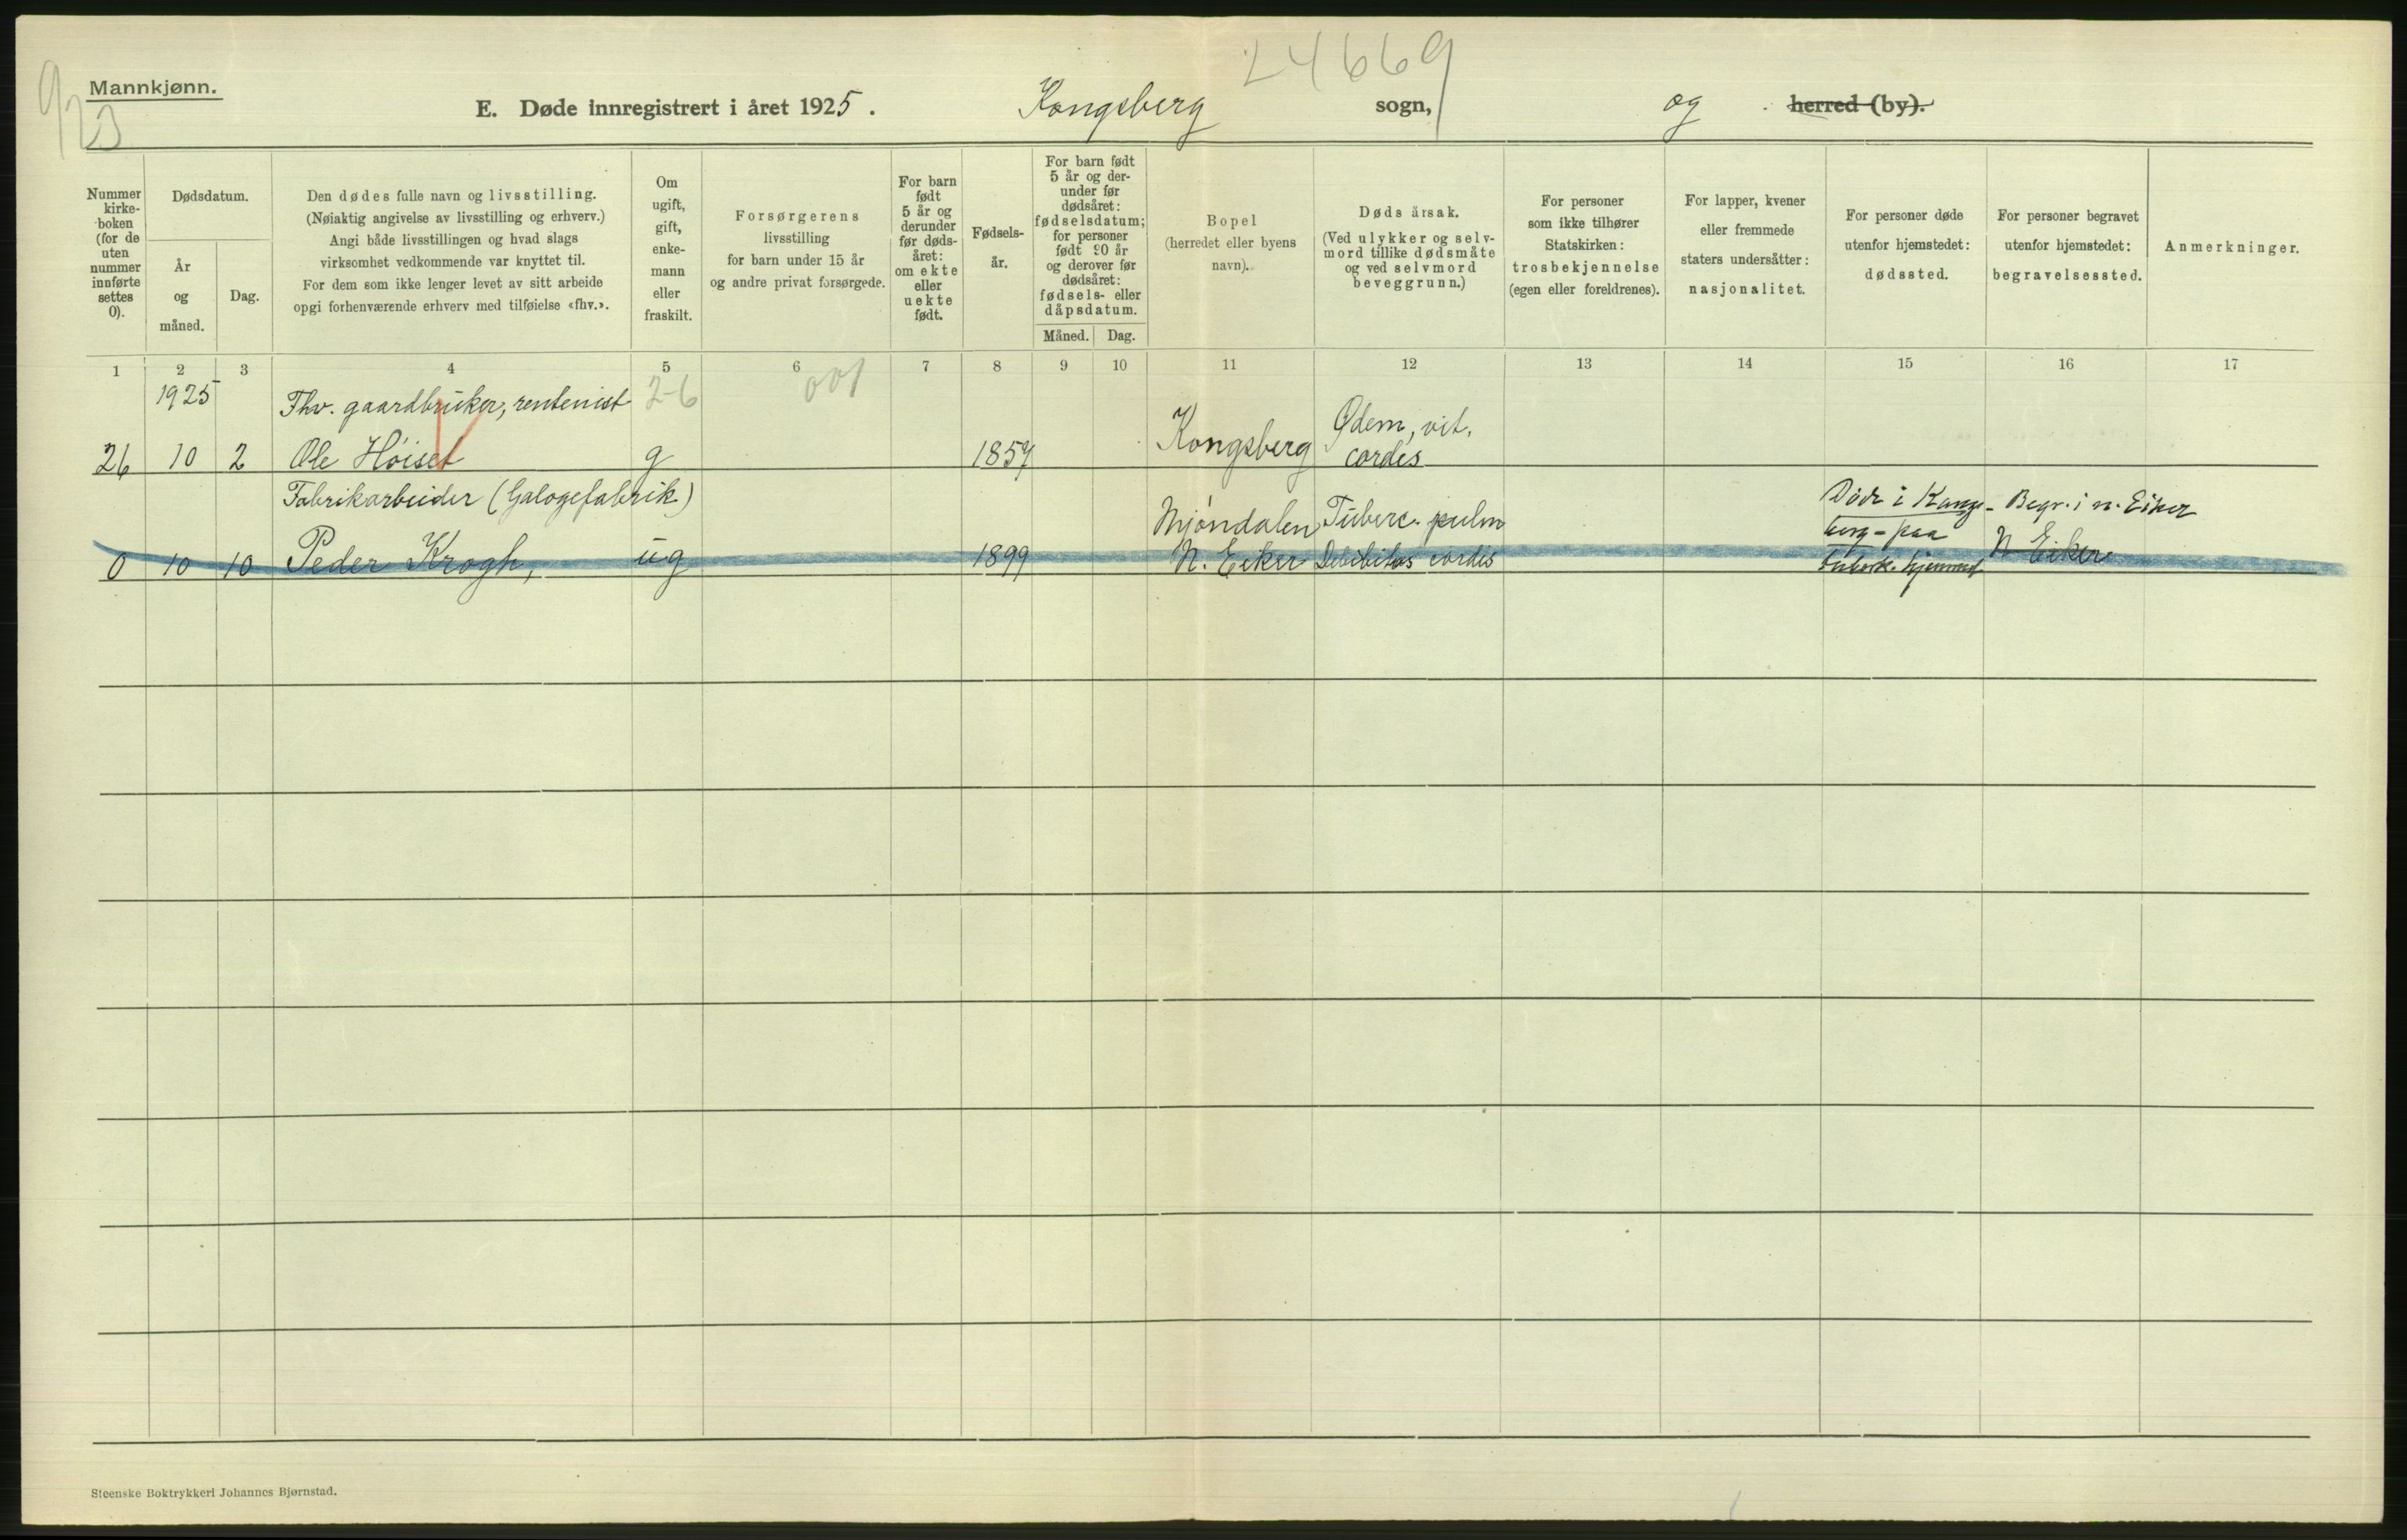 24669
923
Mannkjønn.
E. Døde innregistrert i året 1925. Kongsberg sogn, og herred (by).
Nummer kirke-boken (for de uten nummer innførte settes 0).
Dødsdatum.
År og måned.
Dag.
Den dødes fulle navn og livsstilling.
(Nøiaktig angivelse av livsstilling og erhverv.)
Angi både livsstillingen og hvad slags
virksomhet vedkommende var knyttet til.
For dem som ikke lenger levet av sitt arbeide
opgi forhenværende erhverv med tilføielse «fhv.».
Om ugift, gift, enke-mann eller fraskilt.
Forsørgerens
livsstilling
for barn under 15 år
og andre privat forsørgede.
For barn født 5 år og derunder før døds-året: om ekte eller uekte født.
Fødsels-år.
For barn født 5 år og der-under før dødsåret: fødselsdatum; for personer født 90 år og derover før dødsåret: fødsels- eller dåpsdatum.
Måned.
Dag.
Bopel
(herredet eller byens
navn).
Dødsårsak.
(Ved ulykker og selv-
mord tillike dødsmåte
og ved selvmord
beveggrunn.)
For personer
som ikke tilhører
Statskirken:
trosbekjennelse
(egen eller foreldrenes).
For lapper, kvener
eller fremmede
staters undersåtter:
nasjonalitet.
For personer døde
utenfor hjemstedet:
dødssted.
For personer begravet
utenfor hjemstedet:
begravelsessted.
Anmerkninger.
1 2 3 4 5 6 7 8 9 10 11 12 13 14 15 16 17
1925 Fhv. gaardbruker, rentenist 2-6 001
26 10 2 Ole Höiset g 1857 Kongsberg Ødem, vit.
cordis
Fabrikarbeider (Galogefabrik)
0 10 10 Peder Krogh, ug 1899 Mjöndalen
N. Eiker
Tuberc. pulm
Debilitas cordis
Döde i Kongs-
berg - paa
tuberk. hjemmet
Begr. i n. Eiker
N Eiker
Steenske Boktrykkeri Johannes Bjørnstad.